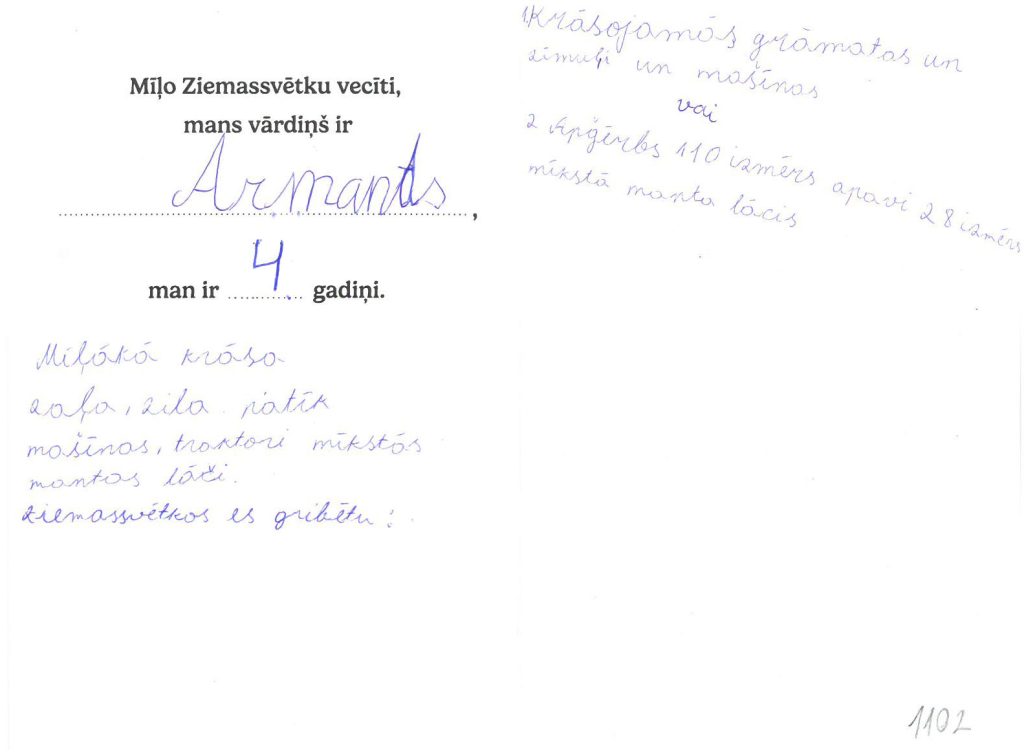 Mīļo Ziemassvētku vecīti,
mans vārdiņš ir
Armands,
man ir 4 gadiņi.
Miļākā krāsa
zaļa, zila patīk
mašīnas, traktori mīkstās
mantas lāči.
Ziemassvētkos es gribētu:
1. Krāsojamās grāmatas un
zīmuļi un mašīnas
vai
2 Apģērbs 110 izmērs apavi 28 izmērs
mīkstā manta lācis
1102